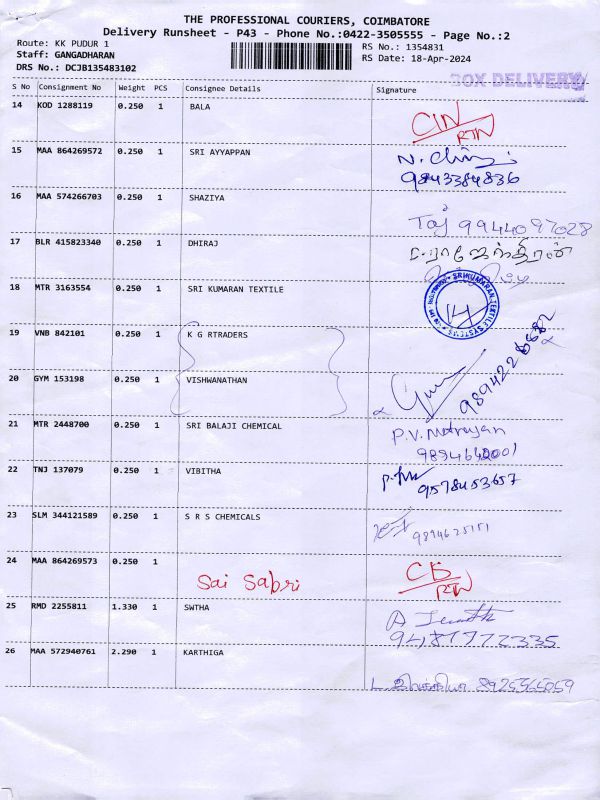 THE PROFESSIONAL COURIERS, COIMBATORE
Delivery Runsheet - P43 - Phone No.:0422-3505555 - Page No.:2
Route: KK PUDUR 1
Staff: GANGADHARAN
DRS No.: DCJB135483102
RS No.: 1354831
RS Date: 18-Apr-2024
BOX DELIVERY
S No Consignment No Weight PCS Consignee Details Signature
14 KOD 1288119 0.250 1 BALA
RTN
15 MAA 864269572 0.250 1 SRI AYYAPPAN
9843384836
16 MAA 574266703 0.250 1 SHAZIYA
Taj 9944097028
17 BLR 415823340 0.250 1 DHIRAJ
18 MTR 3163554 0.250 1 SRI KUMARAN TEXTILE
19 VNB 842101 0.250 1 K G RTRADERS
20 GYM 153198 0.250 1 VISHWANATHAN
21 MTR 2448700 0.250 1 SRI BALAJI CHEMICAL
P.V.
22 TNJ 137079 0.250 1 VIBITHA
9578453657
23 SLM 344121589 0.250 1 S R S CHEMICALS
9894625151
24 MAA 864269573 0.250 1
Sai Sabri
RTN
25 RMD 2255811 1.330 1 SWTHA
26 MAA 572940761 2.290 1 KARTHIGA